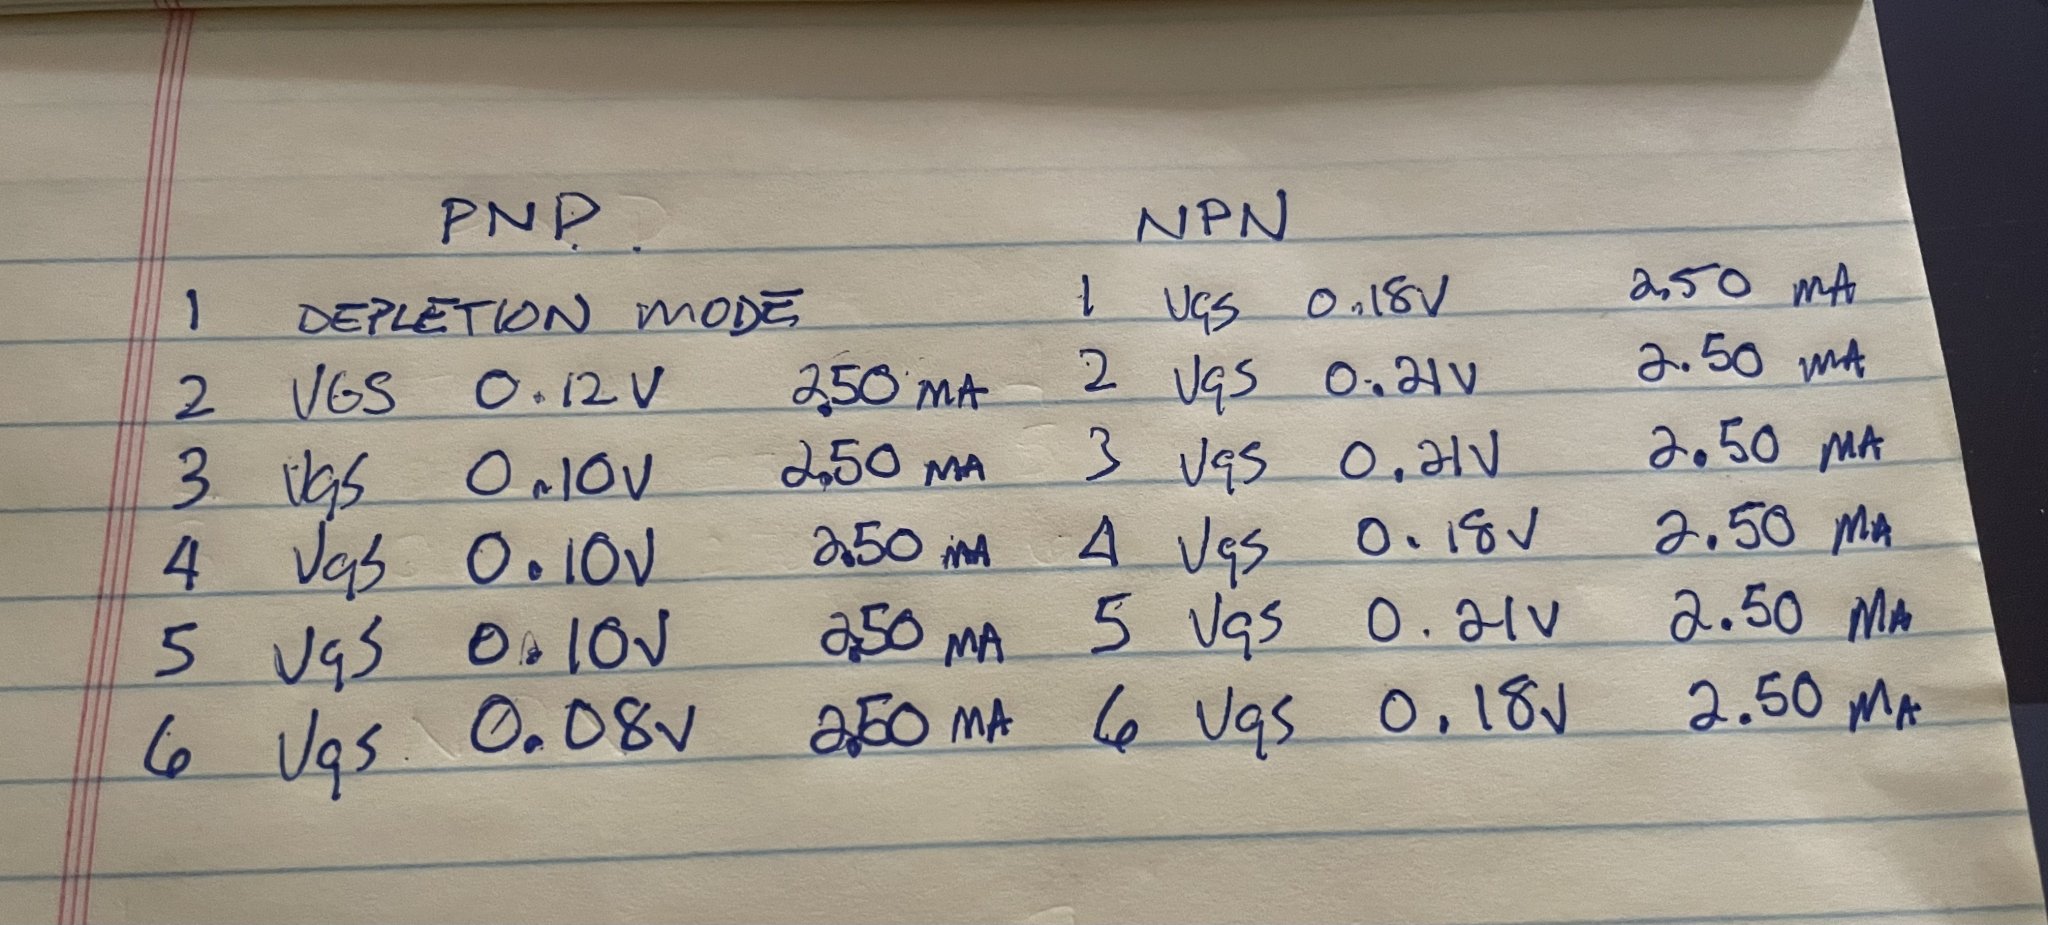 PNP. NPN
1 DEPLETION MODE 1 Vgs 0.18V 2.50 mA
2 VGS 0.12V 2.50 mA 2 Vgs 0.21V 2.50 mA
3 Vgs 0.10V 2.50 mA 3 Vgs 0.21V 2.50 MA
4 Vgs 0.10V 2.50 mA 4 Vgs 0.18V 2.50 MA
5 Vgs 0.10V 2.50 MA 5 Vgs 0.21V 2.50 MA
6 Vgs 0.08V 2.50 MA 6 Vgs 0.18V 2.50 MA